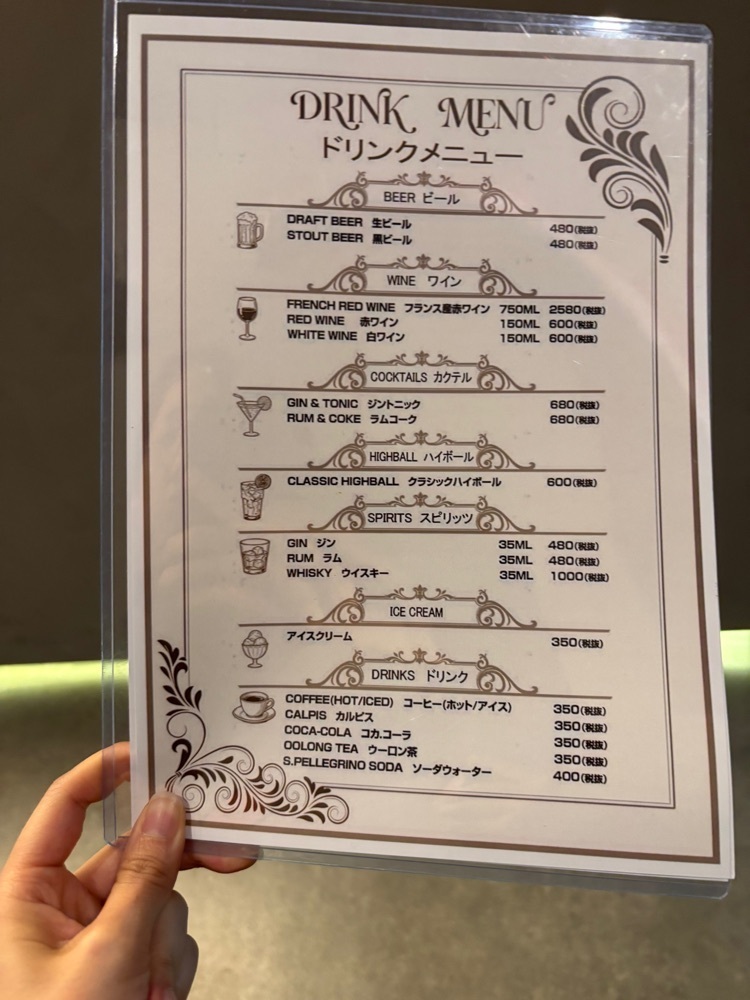 DRINK MENU
ドリンクメニュー
BEER ビール
DRAFT BEER 生ビール 480(税抜)
STOUT BEER 黒ビール 480(税抜)
WINE ワイン
FRENCH RED WINE フランス産赤ワイン 750ML 2580(税抜)
RED WINE 赤ワイン 150ML 600(税抜)
WHITE WINE 白ワイン 150ML 600(税抜)
COCKTAILS カクテル
GIN & TONIC ジントニック 680(税抜)
RUM & COKE ラムコーク 680(税抜)
HIGHBALL ハイボール
CLASSIC HIGHBALL クラシックハイボール 600(税抜)
SPIRITS スピリッツ
GIN ジン 35ML 480(税抜)
RUM ラム 35ML 480(税抜)
WHISKY ウイスキー 35ML 1000(税抜)
ICE CREAM
アイスクリーム 350(税抜)
DRINKS ドリンク
COFFEE(HOT/ICED) コーヒー(ホット/アイス) 350(税抜)
CALPIS カルピス 350(税抜)
COCA-COLA コカ.コーラ 350(税抜)
OOLONG TEA ウーロン茶 350(税抜)
S.PELLEGRINO SODA ソーダウォーター 400(税抜)